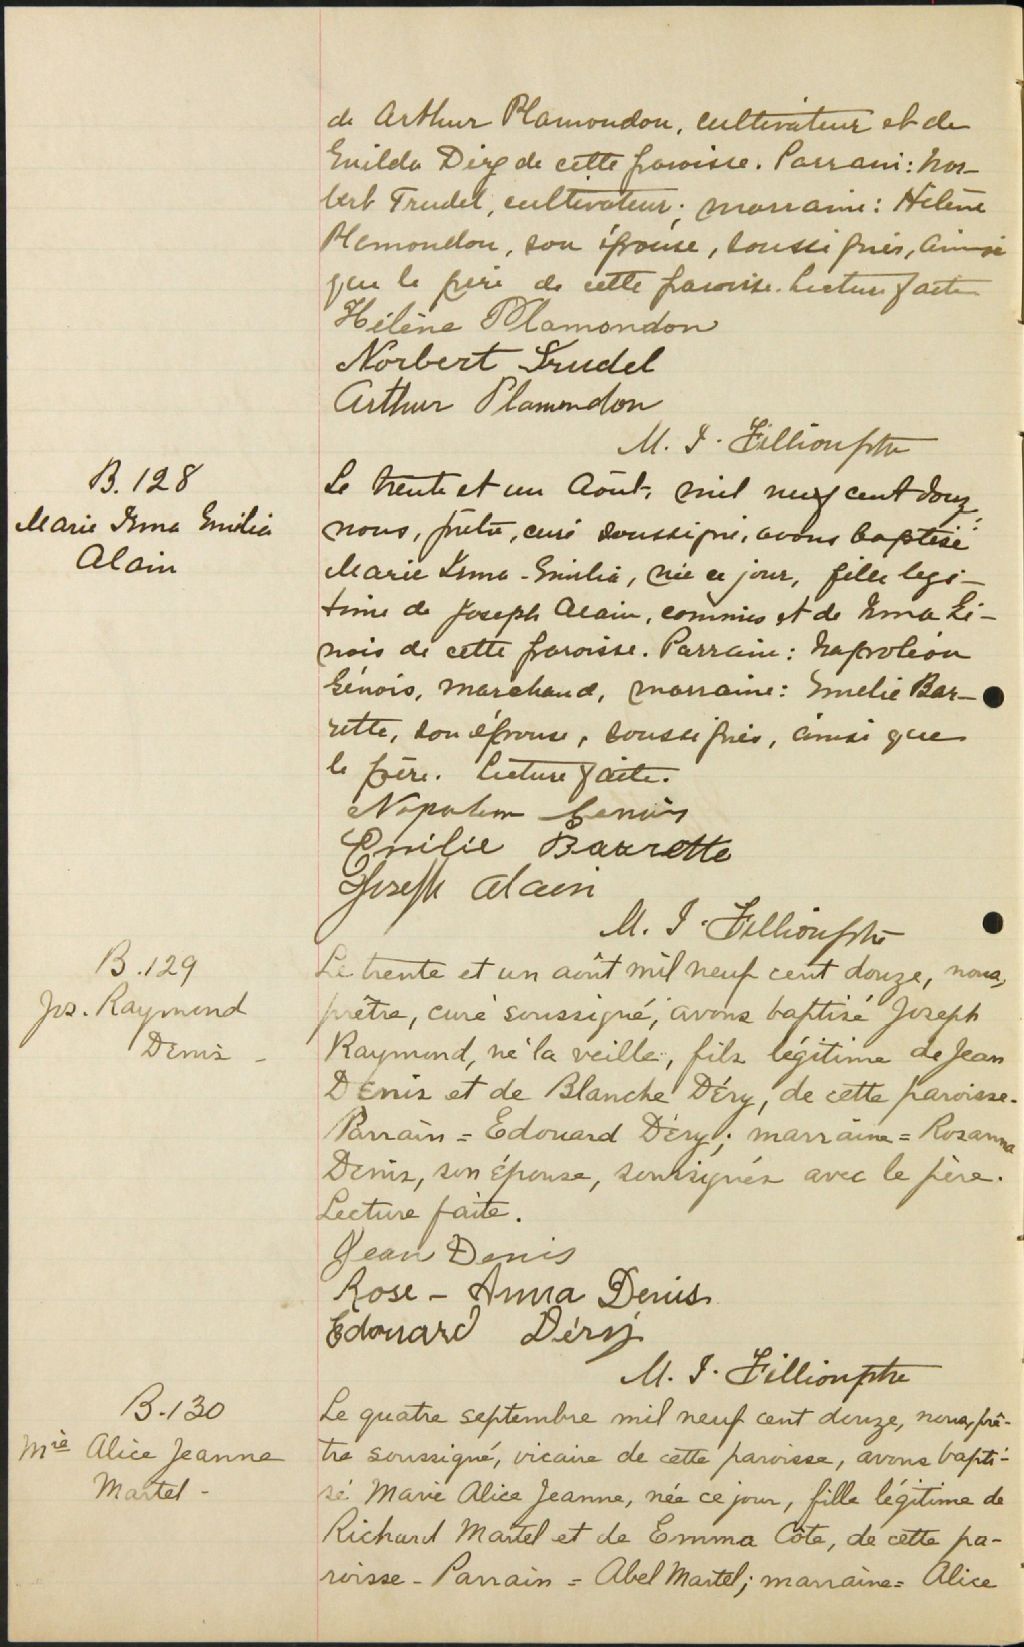 de Arthur Plamondon, cultivateur et de
Enilda Dery de cette paroisse. Parrain: Nor-
bert Trudel, cultivateur; marraine: Hélène
Plamondon, son épouse, soussignés, ainsi
que le père de cette paroisse. Lecture faite
Hélène Plamondon
Norbert Trudel
Arthur Plamondon
M. I. Fillion ptre
B. 128
Marie Irma Emilia
Alain
Le trente et un Août, mil neuf cent douze,
nous, prêtre, curé soussigné, avons baptisé
Marie Irma-Emilia, née ce jour, fille légi-
time de Joseph Alain, commis et de Irma Gé-
nois de cette paroisse. Parrain: Napoléon
Génois, marchand, marraine: Emelie Bar-
rette, son épouse, soussignés, ainsi que
le père. Lecture faite.
Napoleon Genois
Emilie Barrette
Joseph Alain
M. I. Fillion ptre
B. 129
Jos. Raymond
Denis -
Le trente et un août mil neuf cent douze, nous,
prêtre, curé soussigné, avons baptisé Joseph
Raymond, né la veille, fils légitime de Jean
Denis et de Blanche Déry, de cette paroisse.
Parrain = Edouard Déry; marraine = Rosanna
Denis, son épouse, soussignés avec le père.
Lecture faite.
Jean Denis
Rose - Anna Denis
Edouard Déry
M. I. Fillion ptre
B. 130
Mie Alice Jeanne
Martel -
Le quatre septembre mil neuf cent douze, nous, prê-
tre soussigné, vicaire de cette paroisse, avons bapti-
sé Marie Alice Jeanne, née ce jour, fille légitime de
Richard Martel et de Emma Côte, de cette pa-
roisse - Parrain = Abel Martel; marraine = Alice